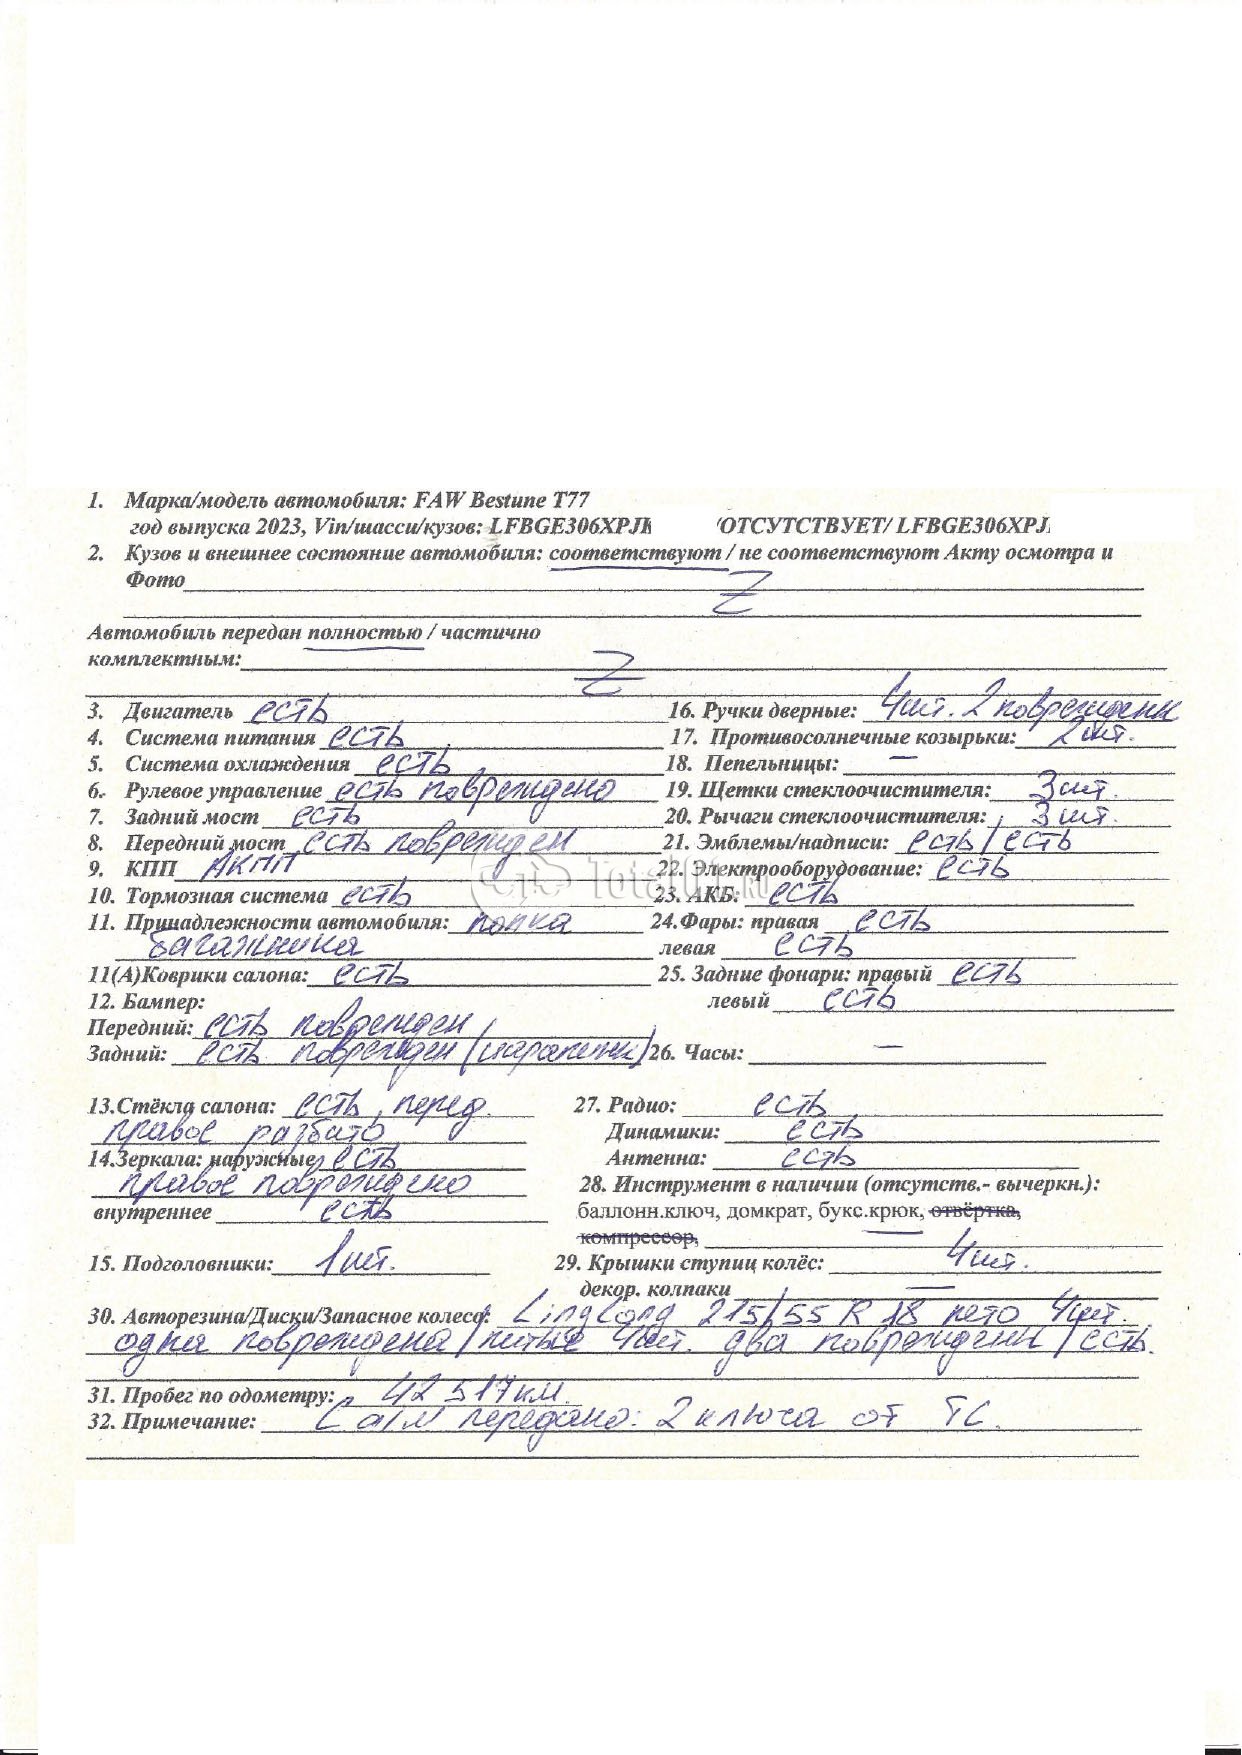 1. Марка/модель автомобиля: FAW Bestune T77
год выпуска 2023, Vin/шасси/кузов: LFBGE306XPJ /ОТСУТСТВУЕТ/ LFBGE306XPJ
2. Кузов и внешнее состояние автомобиля: соответствуют / не соответствуют Акту осмотра и
Фото Z
Автомобиль передан полностью / частично
комплектным: Z
3. Двигатель есть 16. Ручки дверные: 4шт. 2 повреждены
4. Система питания есть 17. Противосолнечные козырьки: 2шт.
5. Система охлаждения есть 18. Пепельницы: —
6. Рулевое управление есть повреждено 19. Щетки стеклоочистителя: 3шт.
7. Задний мост есть 20. Рычаги стеклоочистителя: 3шт.
8. Передний мост есть поврежден 21. Эмблемы/надписи: есть/есть
9. КПП АКПП 22. Электрооборудование: есть
Total01.RU
10. Тормозная система есть 23. АКБ: есть
11. Принадлежности автомобиля: полка 24.Фары: правая есть
багажника левая есть
11(А)Коврики салона: есть 25. Задние фонари: правый есть
12. Бампер: левый есть
Передний: есть поврежден
Задний: есть поврежден (царапины) 26. Часы: —
13.Стёкла салона: есть, перед. 27. Радио: есть
правое разбито Динамики: есть
14.Зеркала: наружные есть Антенна: есть
правое повреждено 28. Инструмент в наличии (отсутств.- вычеркн.):
внутреннее есть баллонн.ключ, домкрат, букс.крюк, отвёртка,
компрессор, —
15. Подголовники: 1шт. 29. Крышки ступиц колёс: 4шт.
декор. колпаки —
30. Авторезина/Диски/Запасное колесо: LingLong 215/55 R 18 лето 4шт.
одна повреждена/литые 4шт. два повреждены/есть.
31. Пробег по одометру: 42 517км.
32. Примечание: С а/м передано: 2 ключа от ТС.